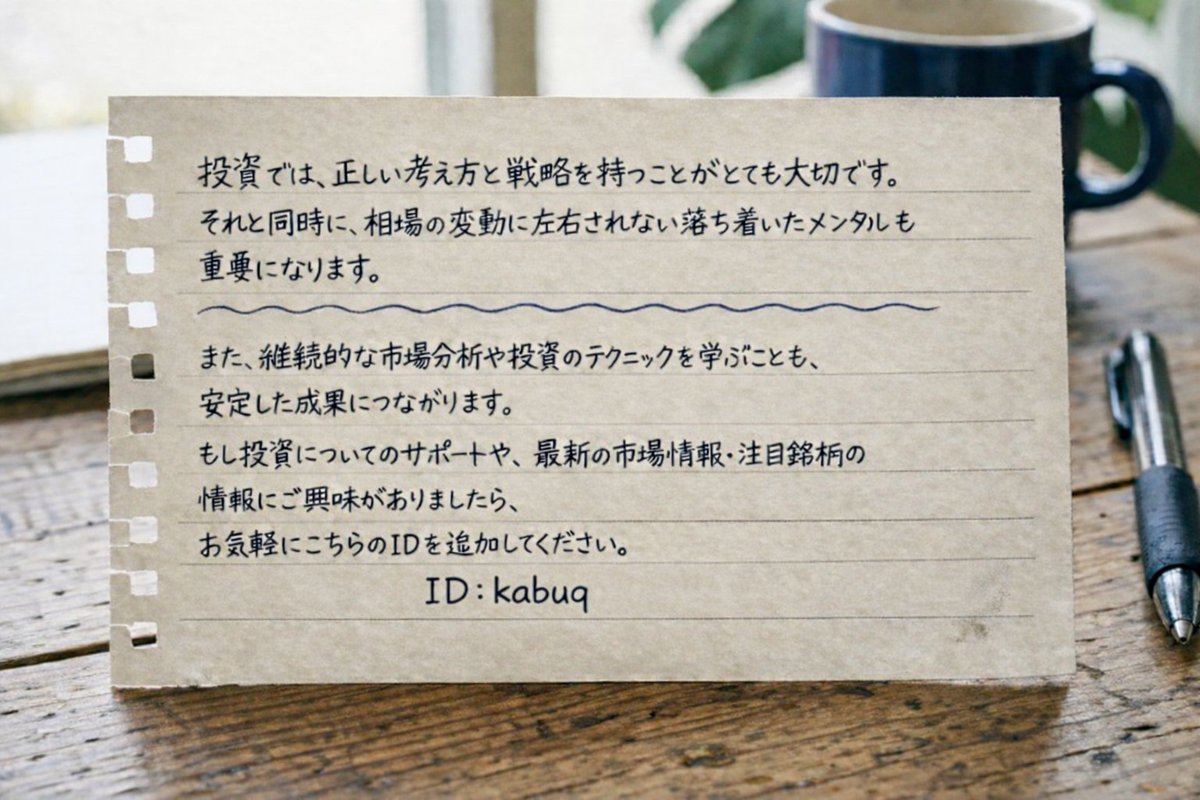 投資では、正しい考え方と戦略を持つことがとても大切です。
それと同時に、相場の変動に左右されない落ち着いたメンタルも
重要になります。
また、継続的な市場分析や投資のテクニックを学ぶことも、
安定した成果につながります。
もし投資についてのサポートや、最新の市場情報・注目銘柄の
情報にご興味がありましたら、
お気軽にこちらのIDを追加してください。
ID：kabuq